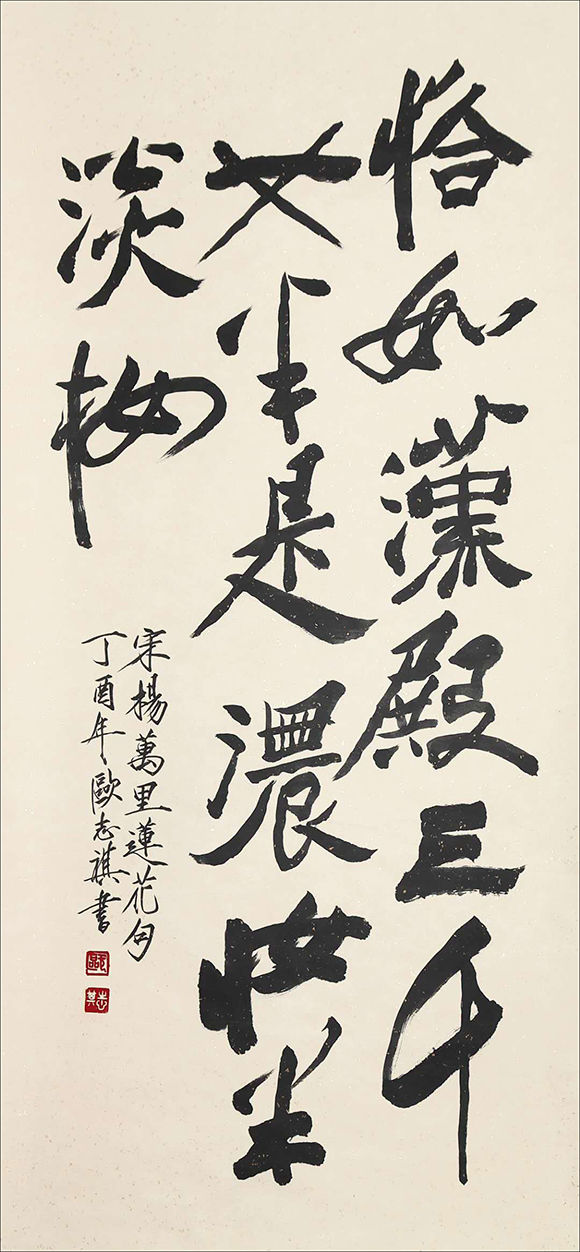 恰如瀟殿三千
女半是濃妝半
淡妝
宋楊萬里蓮花句
丁酉年歐志祺書